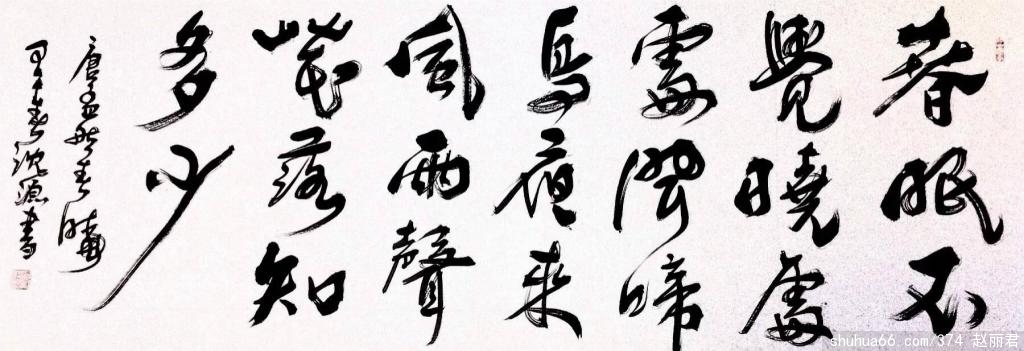 春眠不
覺曉處
處聞啼
鳥夜来
風雨聲
花落知
多少
唐孟浩然春曉
春沈源書
shuhua66.com/374 赵丽君